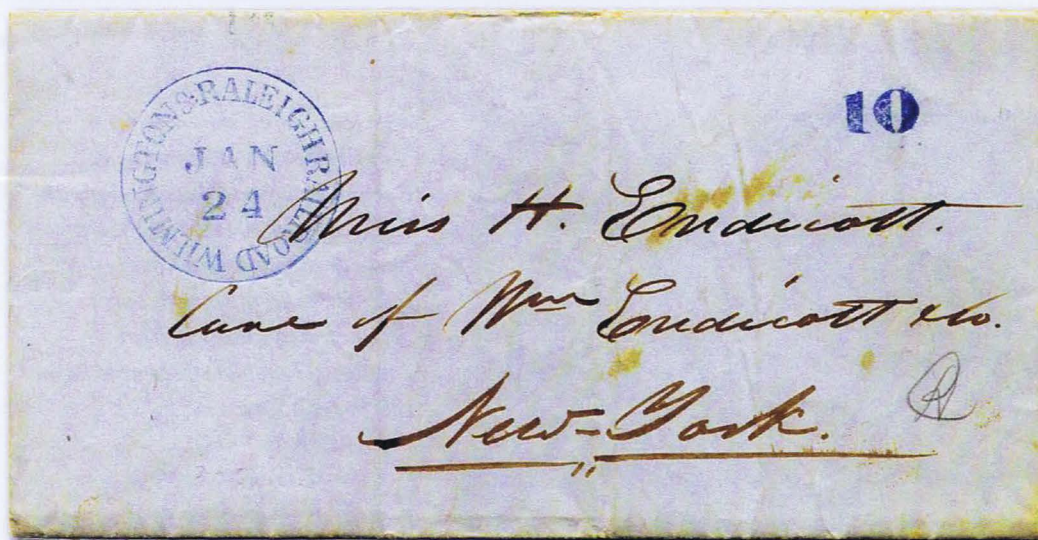 WILMINGTON & RALEIGH RAILROAD
JAN
24
10
Miss H. Endicott.
Care of Wm Endicott & Co.
New-York.